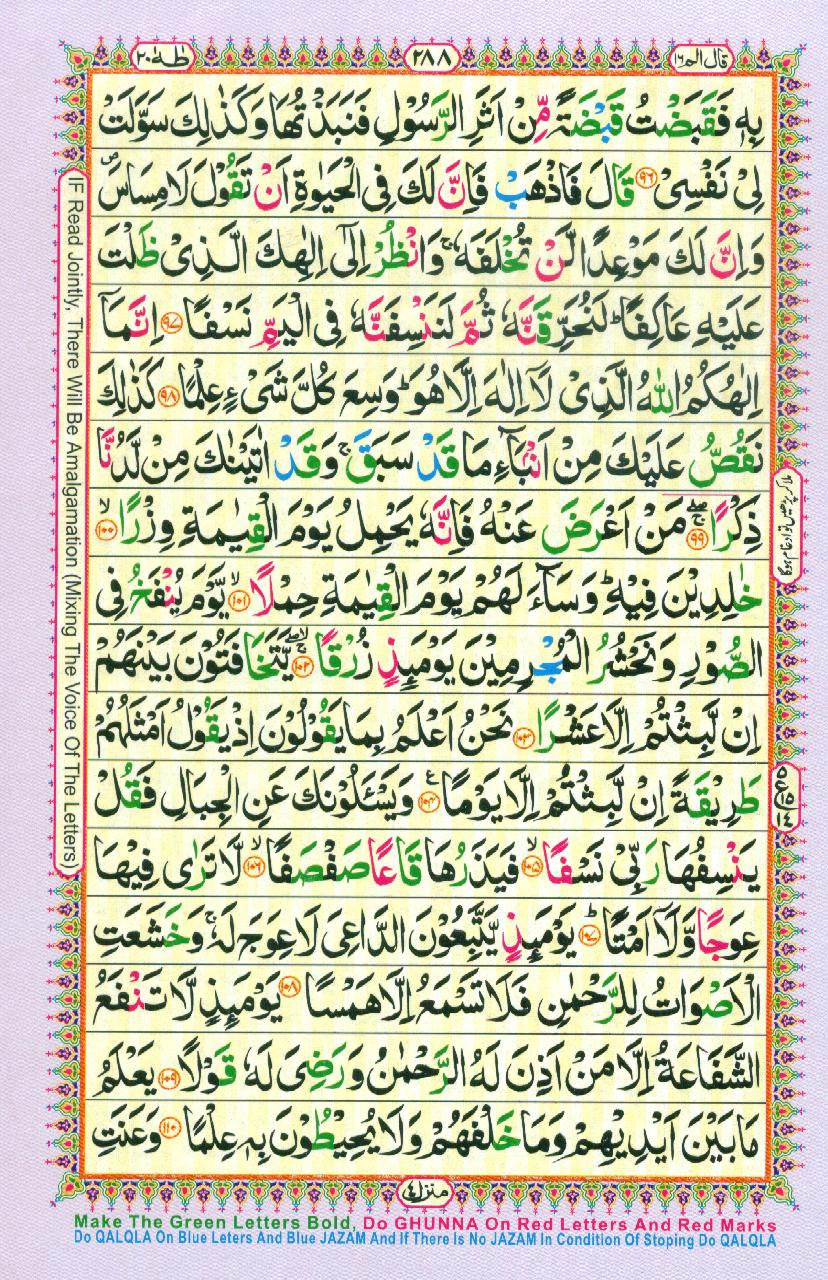 قال الم ١٦
٢٨٨
طٰهٰ ٢٠
بِهٖ فَقَبَضْتُ قَبْضَةً مِّنْ اَثَرِ الرَّسُوْلِ فَنَبَذْتُهَا وَكَذٰلِكَ سَوَّلَتْ
لِیْ نَفْسِیْ ۹۶ قَالَ فَاذْهَبْ فَاِنَّ لَكَ فِی الْحَیٰوةِ اَنْ تَقُوْلَ لَا مِسَاسَ ص
وَاِنَّ لَكَ مَوْعِدًا لَّنْ تُخْلَفَهٗ ۚ وَانْظُرْ اِلٰۤی اِلٰهِكَ الَّذِیْ ظَلْتَ
عَلَیْهِ عَاكِفًا ؕ لَنُحَرِّقَنَّهٗ ثُمَّ لَنَنْسِفَنَّهٗ فِی الْیَمِّ نَسْفًا ۹۷ اِنَّمَاۤ
اِلٰهُكُمُ اللّٰهُ الَّذِیْ لَاۤ اِلٰهَ اِلَّا هُوَ ؕ وَسِعَ كُلَّ شَیْءٍ عِلْمًا ۹۸ كَذٰلِكَ
نَقُصُّ عَلَیْكَ مِنْ اَنْۢبَآءِ مَا قَدْ سَبَقَ ۚ وَقَدْ اٰتَیْنٰكَ مِنْ لَّدُنَّا
ذِكْرًا ۹۹ مَنْ اَعْرَضَ عَنْهُ فَاِنَّهٗ یَحْمِلُ یَوْمَ الْقِیٰمَةِ وِزْرًا ۱۰۰ ۙ
خٰلِدِیْنَ فِیْهِ ؕ وَسَآءَ لَهُمْ یَوْمَ الْقِیٰمَةِ حِمْلًا ۱۰۱ ۙ یَّوْمَ یُنْفَخُ فِی
الصُّوْرِ وَنَحْشُرُ الْمُجْرِمِیْنَ یَوْمَىِٕذٍ زُرْقًا ۱۰۲ یَّتَخَافَتُوْنَ بَیْنَهُمْ
اِنْ لَّبِثْتُمْ اِلَّا عَشْرًا ۱۰۳ نَحْنُ اَعْلَمُ بِمَا یَقُوْلُوْنَ اِذْ یَقُوْلُ اَمْثَلُهُمْ
طَرِیْقَةً اِنْ لَّبِثْتُمْ اِلَّا یَوْمًا ۱۰۴ ع وَیَسْـَٔلُوْنَكَ عَنِ الْجِبَالِ فَقُلْ
یَنْسِفُهَا رَبِّیْ نَسْفًا ۱۰۵ ۙ فَیَذَرُهَا قَاعًا صَفْصَفًا ۱۰۶ ۙ لَّا تَرٰی فِیْهَا
عِوَجًا وَّلَاۤ اَمْتًا ۱۰۷ ؕ یَوْمَىِٕذٍ یَّتَّبِعُوْنَ الدَّاعِیَ لَا عِوَجَ لَهٗ ۚ وَخَشَعَتِ
الْاَصْوَاتُ لِلرَّحْمٰنِ فَلَا تَسْمَعُ اِلَّا هَمْسًا ۱۰۸ یَوْمَىِٕذٍ لَّا تَنْفَعُ
الشَّفَاعَةُ اِلَّا مَنْ اَذِنَ لَهُ الرَّحْمٰنُ وَرَضِیَ لَهٗ قَوْلًا ۱۰۹ یَعْلَمُ
مَا بَیْنَ اَیْدِیْهِمْ وَمَا خَلْفَهُمْ وَلَا یُحِیْطُوْنَ بِهٖ عِلْمًا ۱۱۰ وَعَنَتِ
منزل ٤
IF Read Jointly, There Will Be Amalgamation (Mixing The Voice Of The Letters)
Make The Green Letters Bold, Do GHUNNA On Red Letters And Red Marks
Do QALQLA On Blue Leters And Blue JAZAM And If There Is No JAZAM In Condition Of Stoping Do QALQLA